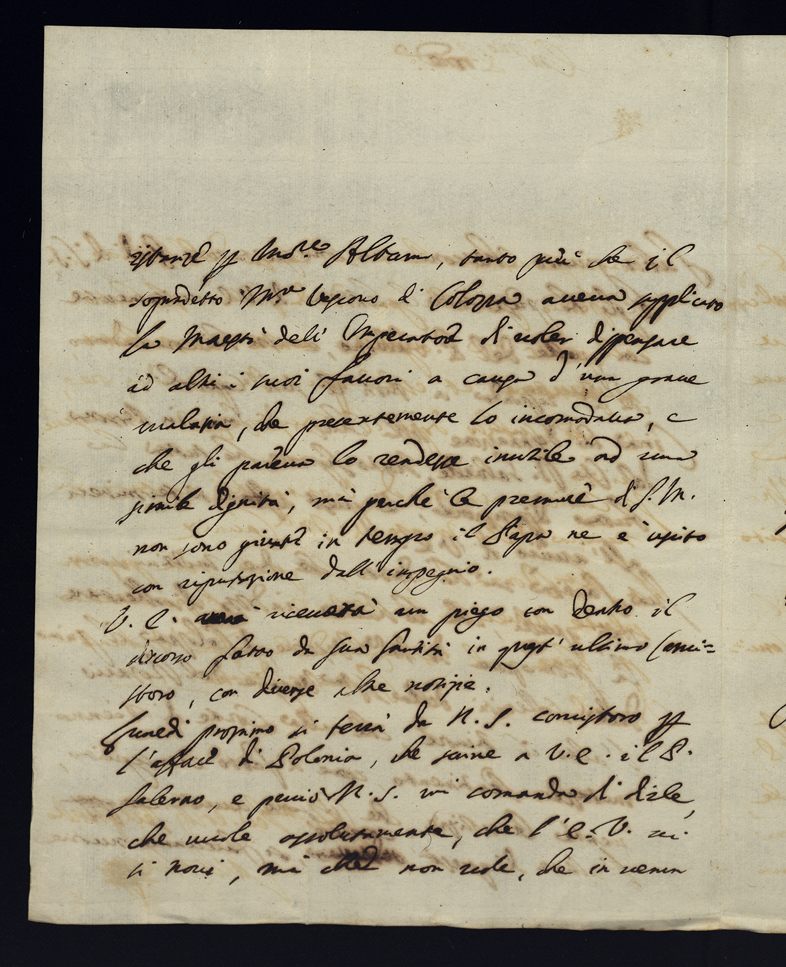 istanze p Mons.re Albani, tanto più che il
sopradetto M.r Vescovo di Colozza aveva supplicato
la Maestà dell' Imperatore di voler dispensare
ad altri i suoi favori a causa d'una grave
malatia, che presentemente lo incomodava, e
che gli pareva lo rendesse inutile ad una
simile dignità, mà perchè le premure di S. M.
non sono giunte in tempo il Papa ne è uscito
con riputazione dall' impegno.
V. E. riceverà un piego con dentro il
discorso fatto da Sua Santità in quest' ultimo Conci=
storo, con diverse altre notizie.
Lunedì prossimo si terrà da N. S. concistoro p
l'affare di Polonia, che scrive a V. E. il P.
Salerno, e perciò N. S. mi comanda di dirle,
che vuole assolutamente, che l' E. V. vi
si trovi, mà che non vuole, che in venir